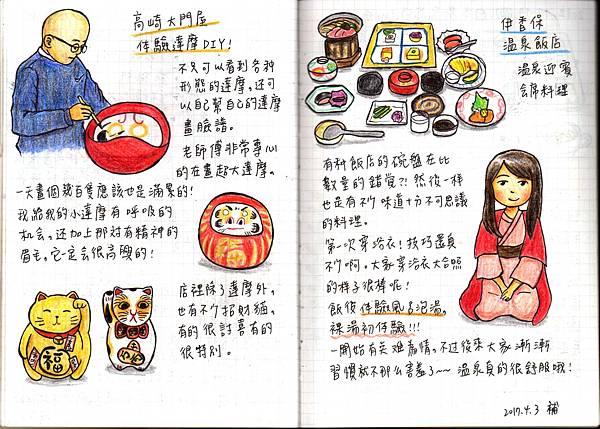 高崎大門屋
体驗達摩DIY!
不又可以看到各种
形態的達摩,还可
以自己幫自己的達摩
畫臉譜。
老師傅非常專心
的在畫超大達摩。
一天畫個幾百隻應該也是滿累的!
我給我的小達摩有呼吸的
机会,还加上那对有精神的
眉毛,它一定会很高興的!
店裡除了達摩外,
也有不少招財貓,
有的很討喜有的
很特別。
福
伊香保
溫泉飯店
溫泉迎賓
会席料理
有种飯店的碗盤在比
數量的錯覺?! 然後一样
也是有不少味道十分不可思議
的料理。
第一次穿浴衣!技巧還真
不少啊。大家穿浴衣大合照
的样子很棒呢!
飯後体驗風呂泡湯。
裸湯初体驗!!!
一開始有点难為情,不过後來大家漸漸
習慣就不那么害羞了~~ 溫泉真的很舒服哦!
2017.4.3 補